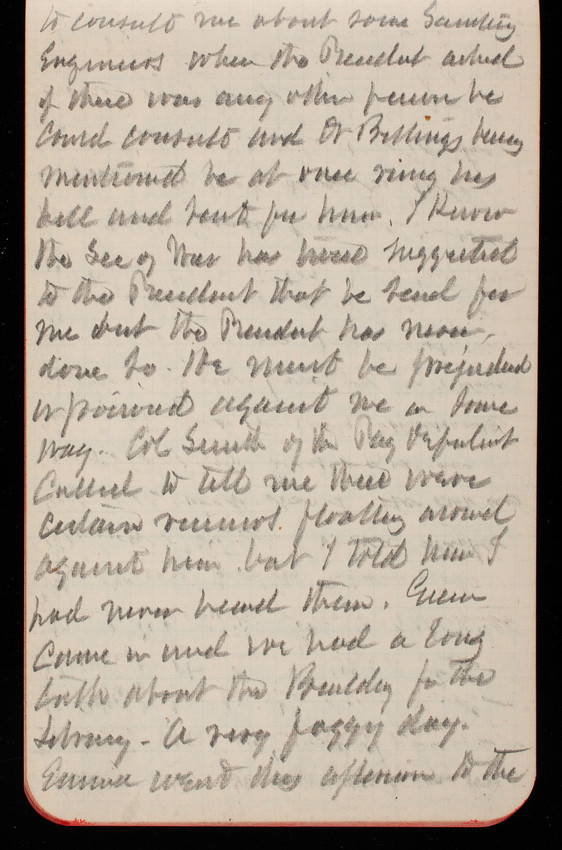 to consult me about some Sanitary
Engineers when the President asked
if there was any other person he
could consult and Dr Billings being
mentioned he at once rung his
bell and sent for him. I know
the Sec of War has twice suggested
to the President that he send for
me but the President has never
done so. He must be prejudiced
or poisoned against me in some
way. Col Smith of the Pay Department
called to tell me there were
certain rumors floating around
against him but I told him I
had never heard them. Green
came in and we had a long
talk about the Building for the
Library - A very foggy day.
Emma went this afternoon to the